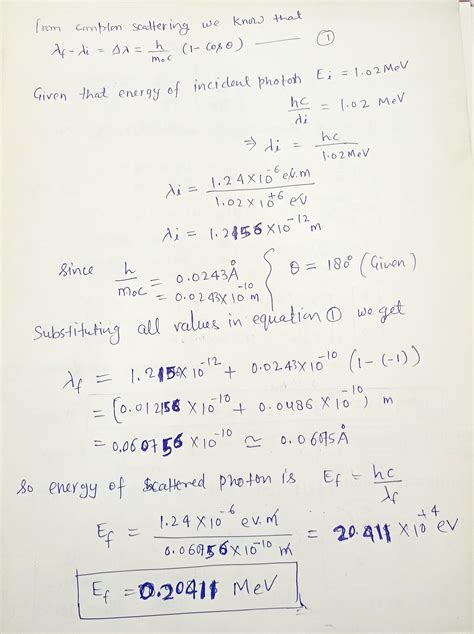 from compton scattering we know that
λf - λi = Δλ = h/m₀c (1 - cosθ) —— ①
Given that energy of incident photon Ei = 1.02 MeV
hc/λi = 1.02 MeV
⇒ λi = hc/1.02 MeV
λi = 1.24 × 10⁻⁶ eV.m / 1.02 × 10⁺⁶ eV
λi = 1.2156 × 10⁻¹² m
Since h/m₀c = 0.0243 Å } θ = 180° (Given)
= 0.0243 × 10⁻¹⁰ m
Substituting all values in equation ① we get
λf = 1.2156 × 10⁻¹² + 0.0243 × 10⁻¹⁰ (1 - (-1))
= [0.012156 × 10⁻¹⁰ + 0.0486 × 10⁻¹⁰) m
= 0.060756 × 10⁻¹⁰ ≃ 0.06075 Å
So energy of Scattered photon is Ef = hc/λf
Ef = 1.24 × 10⁻⁶ eV.m / 0.060756 × 10⁻¹⁰ m = 20.411 × 10⁺⁴ eV
Ef = 0.20411 MeV